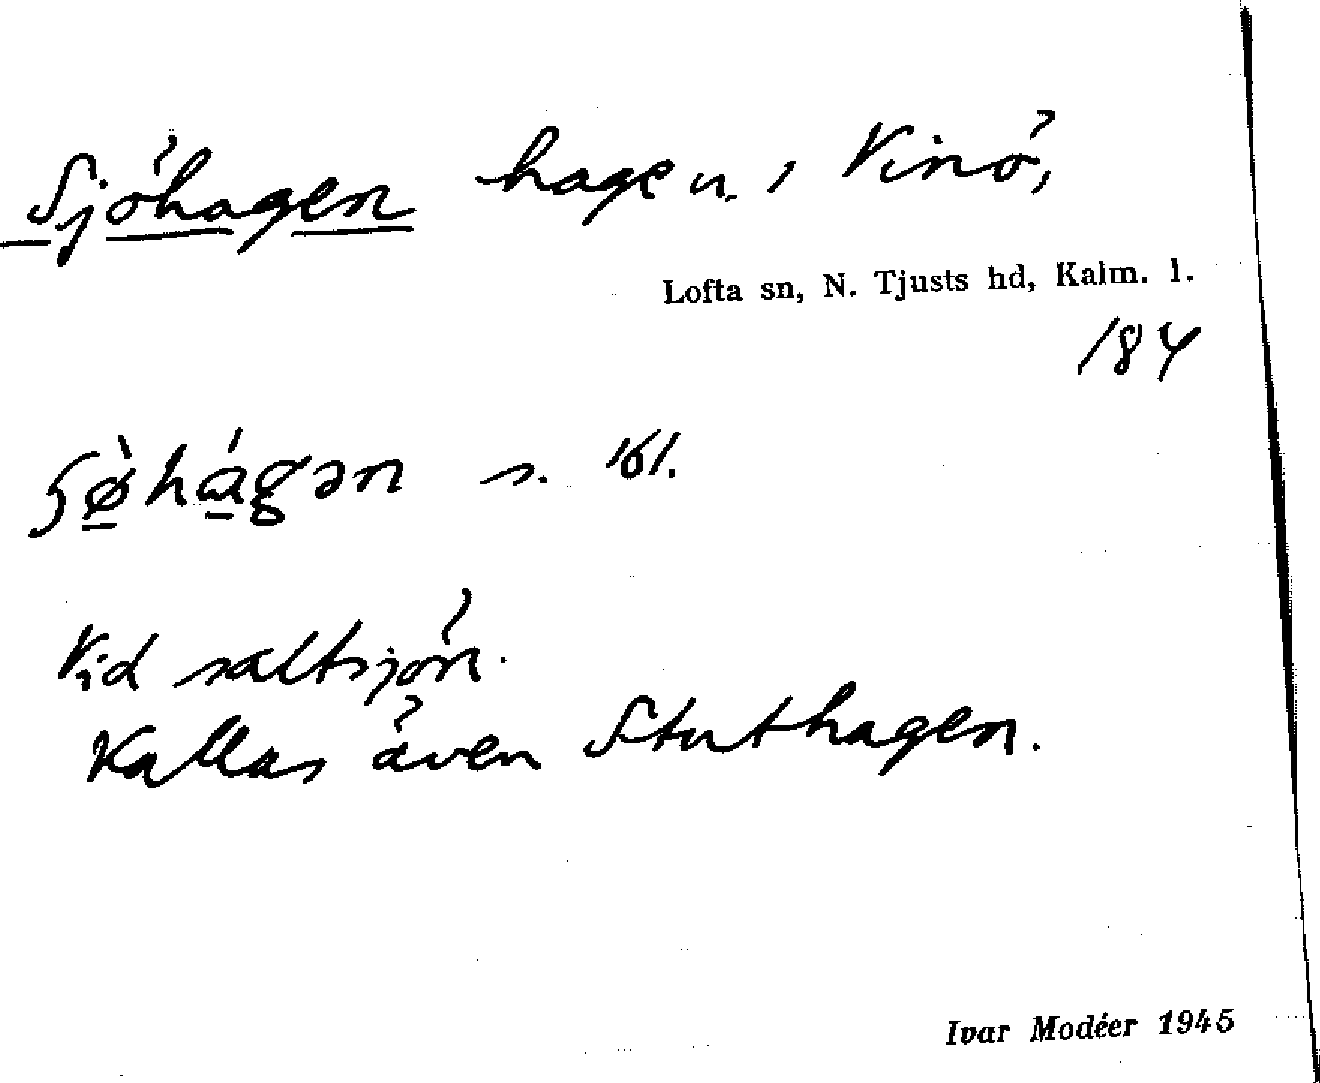 Sjöhagen hage u. , Vinö,
Lofta sn, N. Tjusts hd, Kalm. l.
184
s. 161.
Vid saltsjön.
Kallas även Stuthagen.
Ivar Modéer 1945